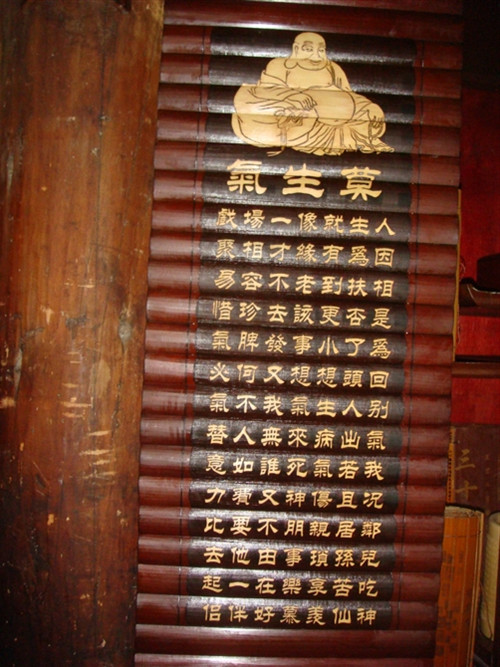 莫生氣
人生就像一場戲
因爲有緣才相聚
相扶到老不容易
是否更該去珍惜
爲了小事發脾氣
回頭想想又何必
別人生氣我不氣
氣出病來無人替
我若氣死誰如意
况且傷神又費力
鄰居親朋不要比
兒孫瑣事由他去
吃苦享樂在一起
神仙羨慕好伴侶
三十